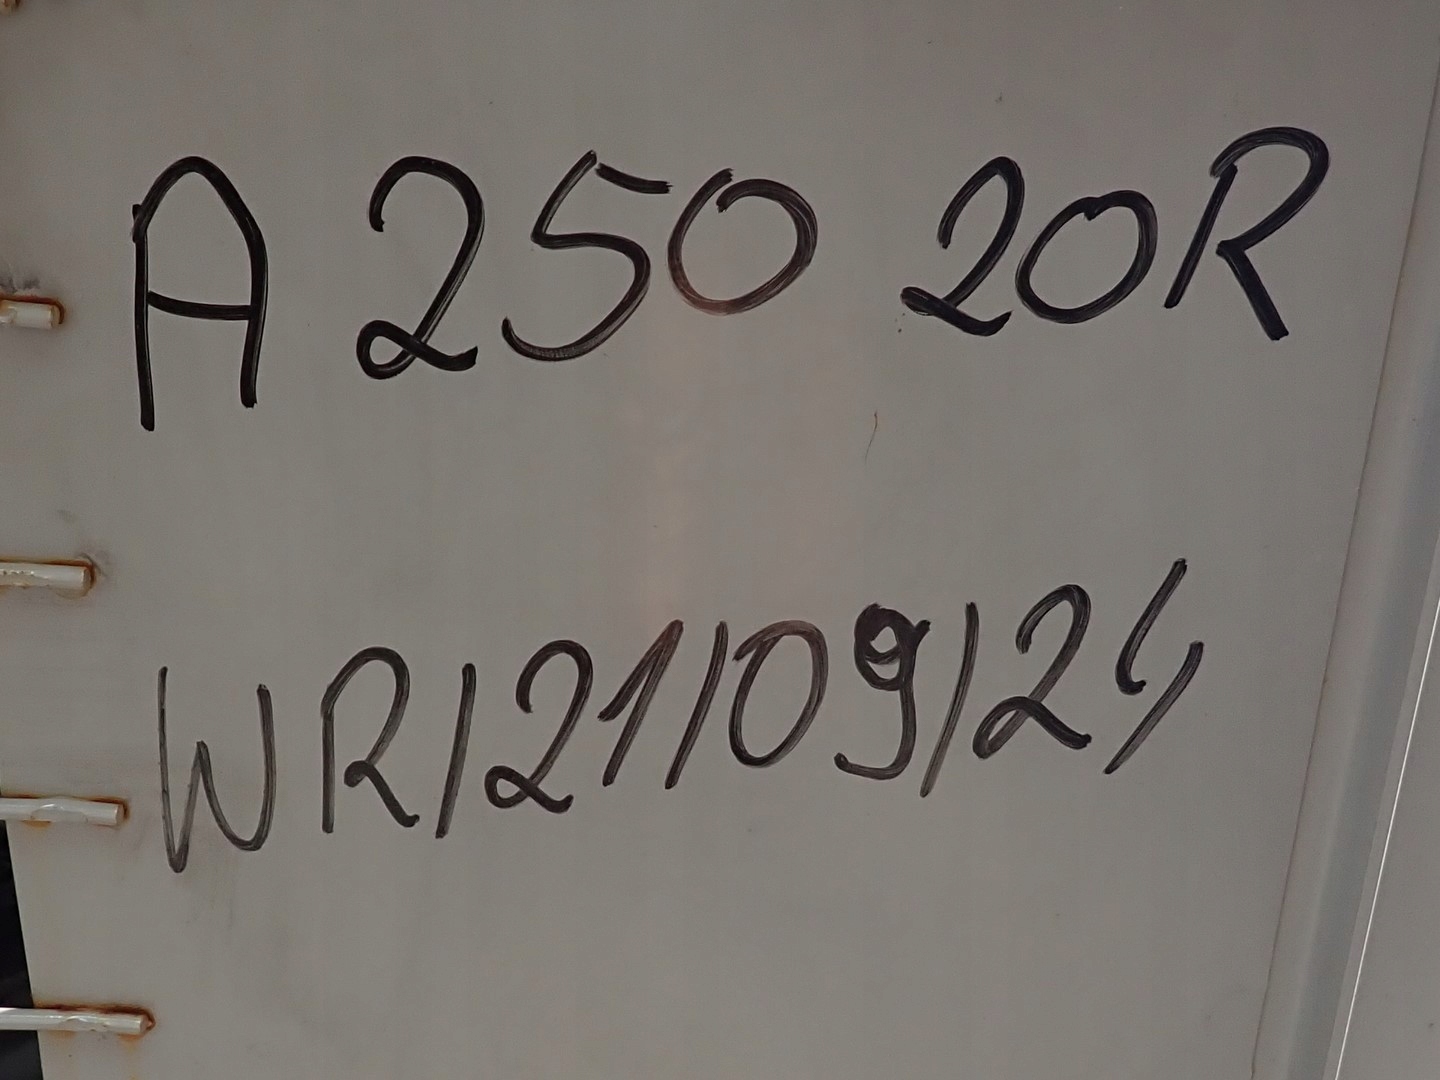 A 250 20R
WR/21/09/24